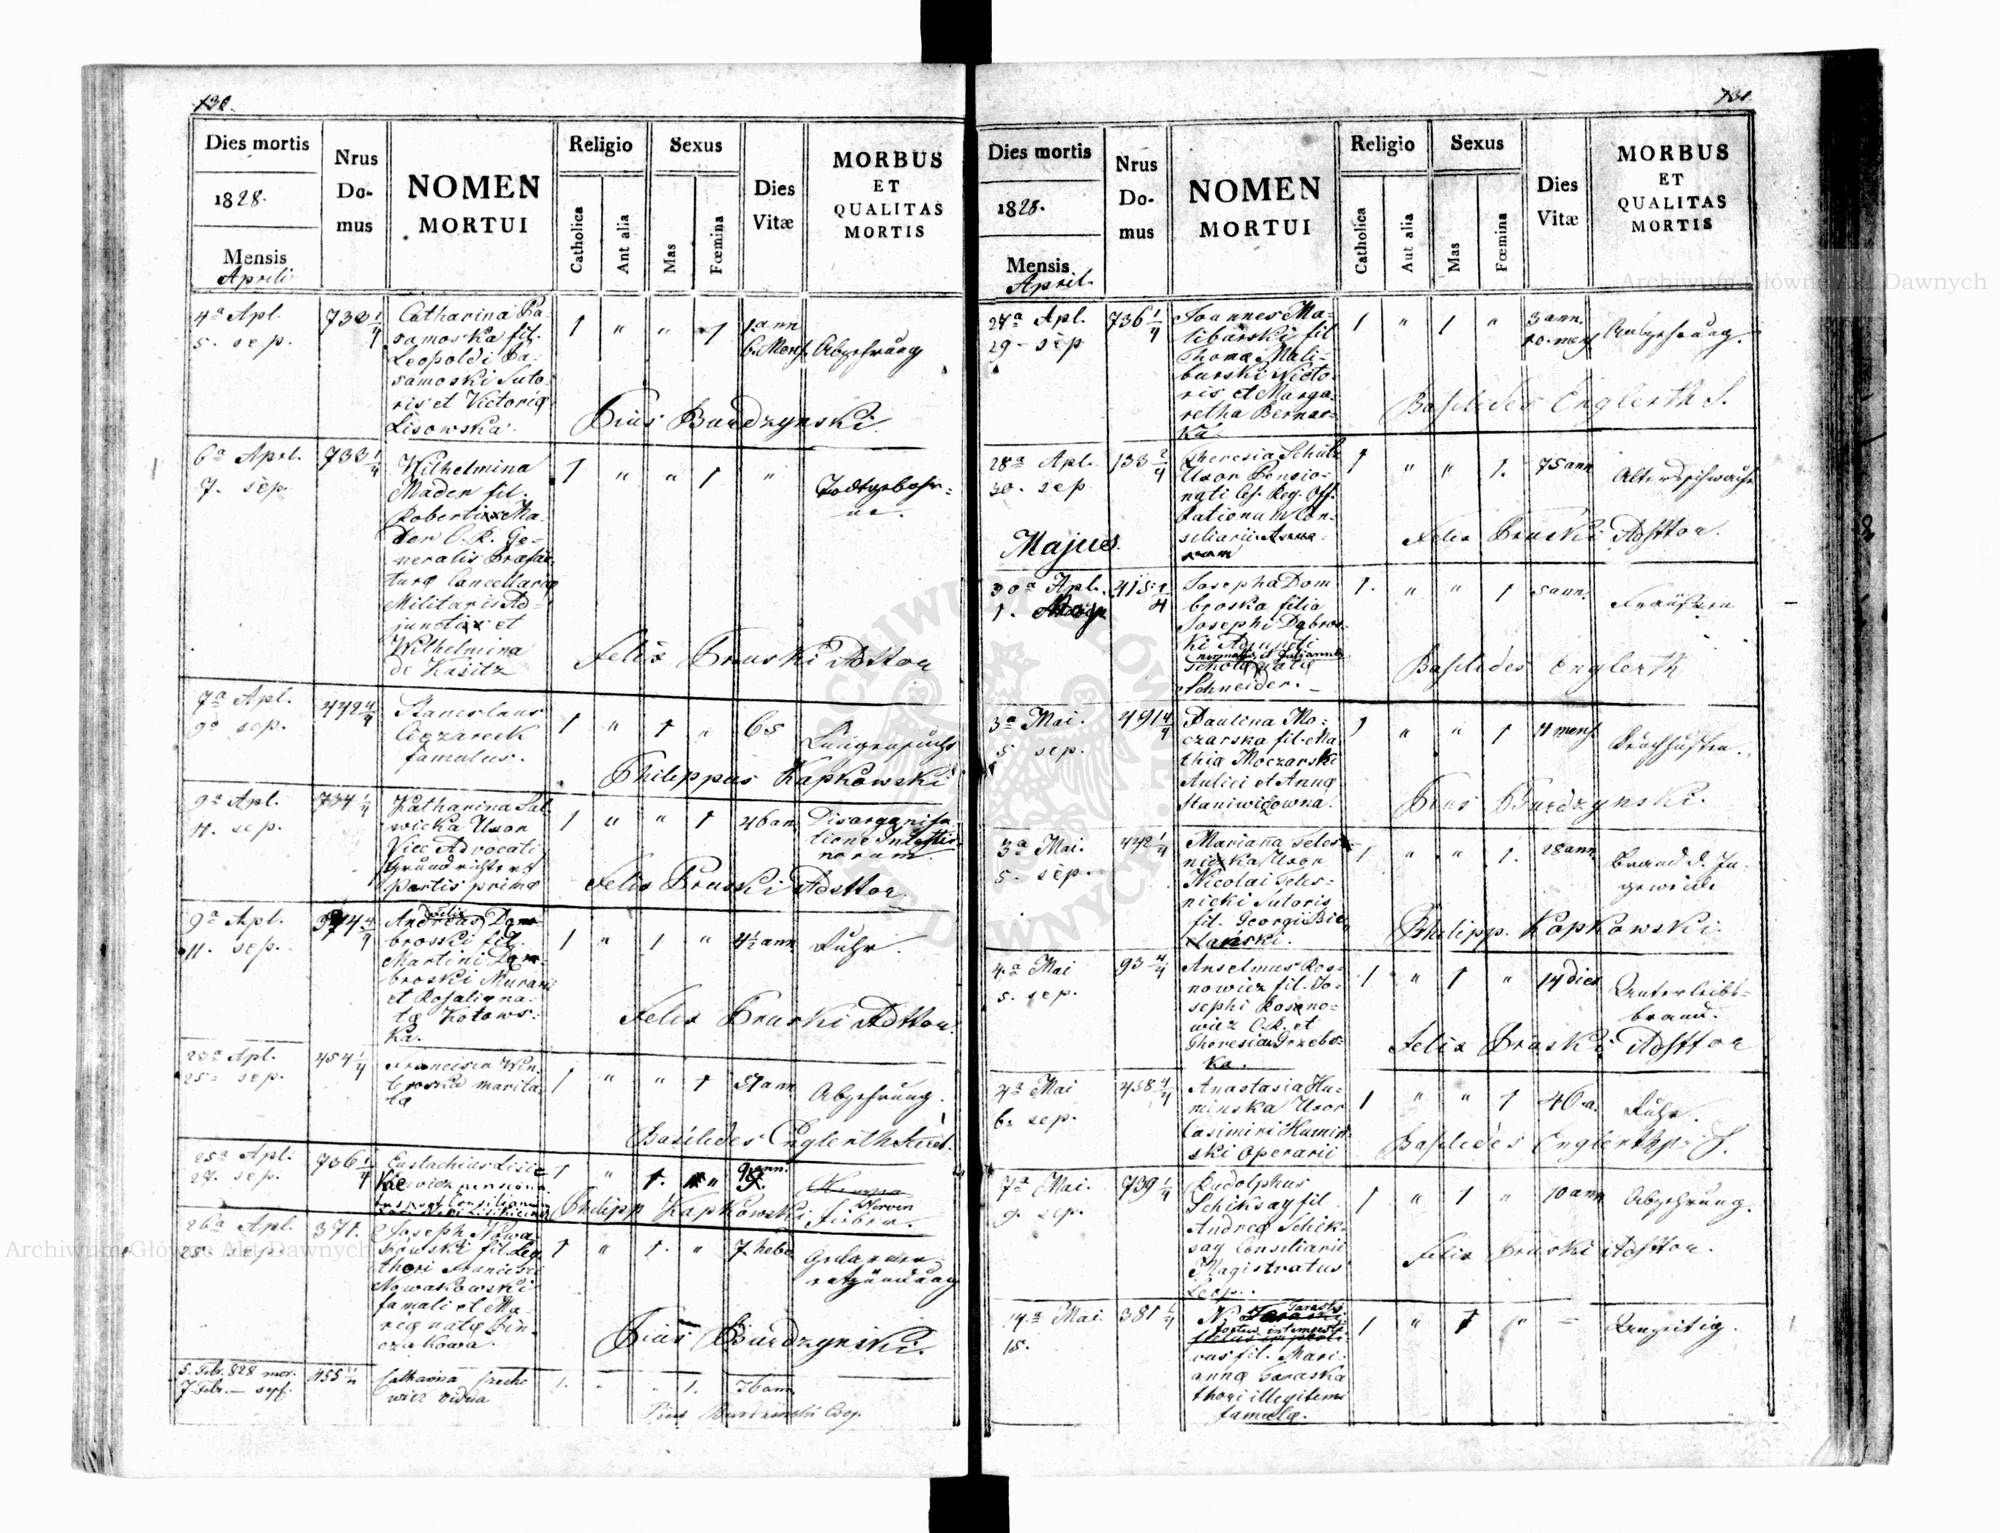 130.
Dies mortis
1828.
Mensis
Aprili
Nrus
Do-
mus
NOMEN
MORTUI
Religio
Catholica
Aut alia
Sexus
Mas
Fœmina
Dies
Vitæ
MORBUS
ET
QUALITAS
MORTIS
4ª Apl.
5. sep.
733 1/4
Catharina
fil.
Leopoldi
samoski Suto-
ris et Victoria
Lisowska.
1 " " 1
1 ann
6 Mens
Abzehrung
Pius Burdzynski.
6ª Aprl.
7. sep.
733 1/4
Wilhelmina
Mader fil.
Roberti Ma-
der C. R. Ge-
neralis Præfec-
turæ Cancellariæ
Militaris Ad-
juncti et
Wilhelmina
de Kasitz
1 " " 1 "
Todtgebohr-
ne.
Felix Pruski Adsttor
7ª Apl.
9ª sep.
442 4/4
Stanislaus
famulus.
1 " 1 " 65
Lungensucht
Philippus Kapkowski
9ª Apl.
11. sep.
734 1/4
Katharina Sal-
wicka Uxor
Vice Advocati
Grundrichters
partis primæ
1 " " 1 46 an
Disorganisa-
tione Intestti-
norum.
Felix Pruski Adsttor
9ª Apl.
11. sep.
4/4
Felix
Andreas Dom-
broski fil.
Martini Dom-
broski Murarii
et Rosalia na-
ta Kotows-
ka.
1 " 1 " 4 1/2 ann
Ruhr.
Felix Pruski Adsttor
23ª Apl.
25. sep.
454 1/4
Francisca
marita-
ta
1 " " 1 ann
Abzehrung.
Basilides Englerth
25ª Apl.
27. sep.
736 1/4
Eustachius Lisie-
kiewicz
1 " 1. " 9 ann.
Nerven
fieber.
Philipp Kapkowski
26ª Apl.
28. sep.
371.
Joseph Nowa-
kowski fil. Leg.
thori Francisci
Nowakowski
famuli et Ma-
riæ natæ Pin-
czakowa.
1 " 1. " 7 hebd
Gedärmen
entzündung
Pius Burdzynski.
5. Febr. 828 mor.
7 Febr. — sep.
455
Catharina
wicz vidua
1. " " 1. 76 ann
Pius Burdzinski Coop.
731.
Dies mortis
1828.
Mensis
April.
Nrus
Do-
mus
NOMEN
MORTUI
Religio
Catholica
Aut alia
Sexus
Mas
Fœmina
Dies
Vitæ
MORBUS
ET
QUALITAS
MORTIS
27ª Apl.
29. sep
736 1/4
Joannes Ma-
liburski fil
Thomæ Mali-
burski Victo-
ris et Marga-
retha Bernar-
ka
1 " 1 "
3 ann.
10. mens
Abzehrung.
Basilides Englerth S.
28ª Apl.
30. sep
133 2/4
Theresia Schulz
Uxor Pensio-
nati Cæs. Reg. Off.
Rationum Con-
siliarii
1 " " 1. 75 ann
Altersschwäche
Felix Pruski Adsttor.
Majus.
30ª Apl.
1. May
415
Josepha Dom
broska filia
Josephi Dabros-
ki Adjuncti
normalis et Julianna
Scholæ natæ
Schneider. –
1. " " 1 5 ann.
Fraüsen
Basilides Englerth
3ª Mai.
5 sep.
491 4/4
Paulina Mo-
czarska fil. Ma-
thia Moczarski
Aulici et Anna
Staniwizowna.
1 " " 1 4 mens
Keichhusten.
Pius Burdzynski.
3ª Mai.
5. sep.
442 1/4
Marianna Teles-
nicka Uxor
Nicolai Teles-
nicki Sutoris
fil. Georgii Bie-
lanski.
1 " " 1. 28 ann.
Brand d. In-
geweide
Philipp. Kapkowski.
4ª Mai
5. sep.
93 4/4
Anselmus Ros-
nowicz fil. Jo-
sephi Rosno-
wicz C.R. et
Theresia Grzebs-
ka.
1 " 1 " 14 dies
Unterleibs-
brand.
Felix Pruski Adsttor
4ª Mai
6. sep.
458 4/4
Anastasia Hu-
minska Uxor
Casimiri Humin-
ski Operarii
1 " " 1 40 a.
Ruhr.
Basilides Englerth S.
7ª Mai.
9. sep.
739 1/4
Rudolphus
Schiksay fil.
Andreæ Schik-
say Consiliarii
Magistratus
Leop.
1 " 1 " 10 ann
Abzehrung.
Felix Pruski Adsttor.
14ª Mai.
15.
381 1/4
N. Taraski
foetus intempesti
vus fil. Mari-
anna Taraska
thori illegitimi
famula.
1 " 1 " –
Unzeitig.
Archiwum Główne Akt Dawnych
Archiwum Główne Akt Dawnych
ARCHIWUM GŁÓWNE AKT DAWNYCH